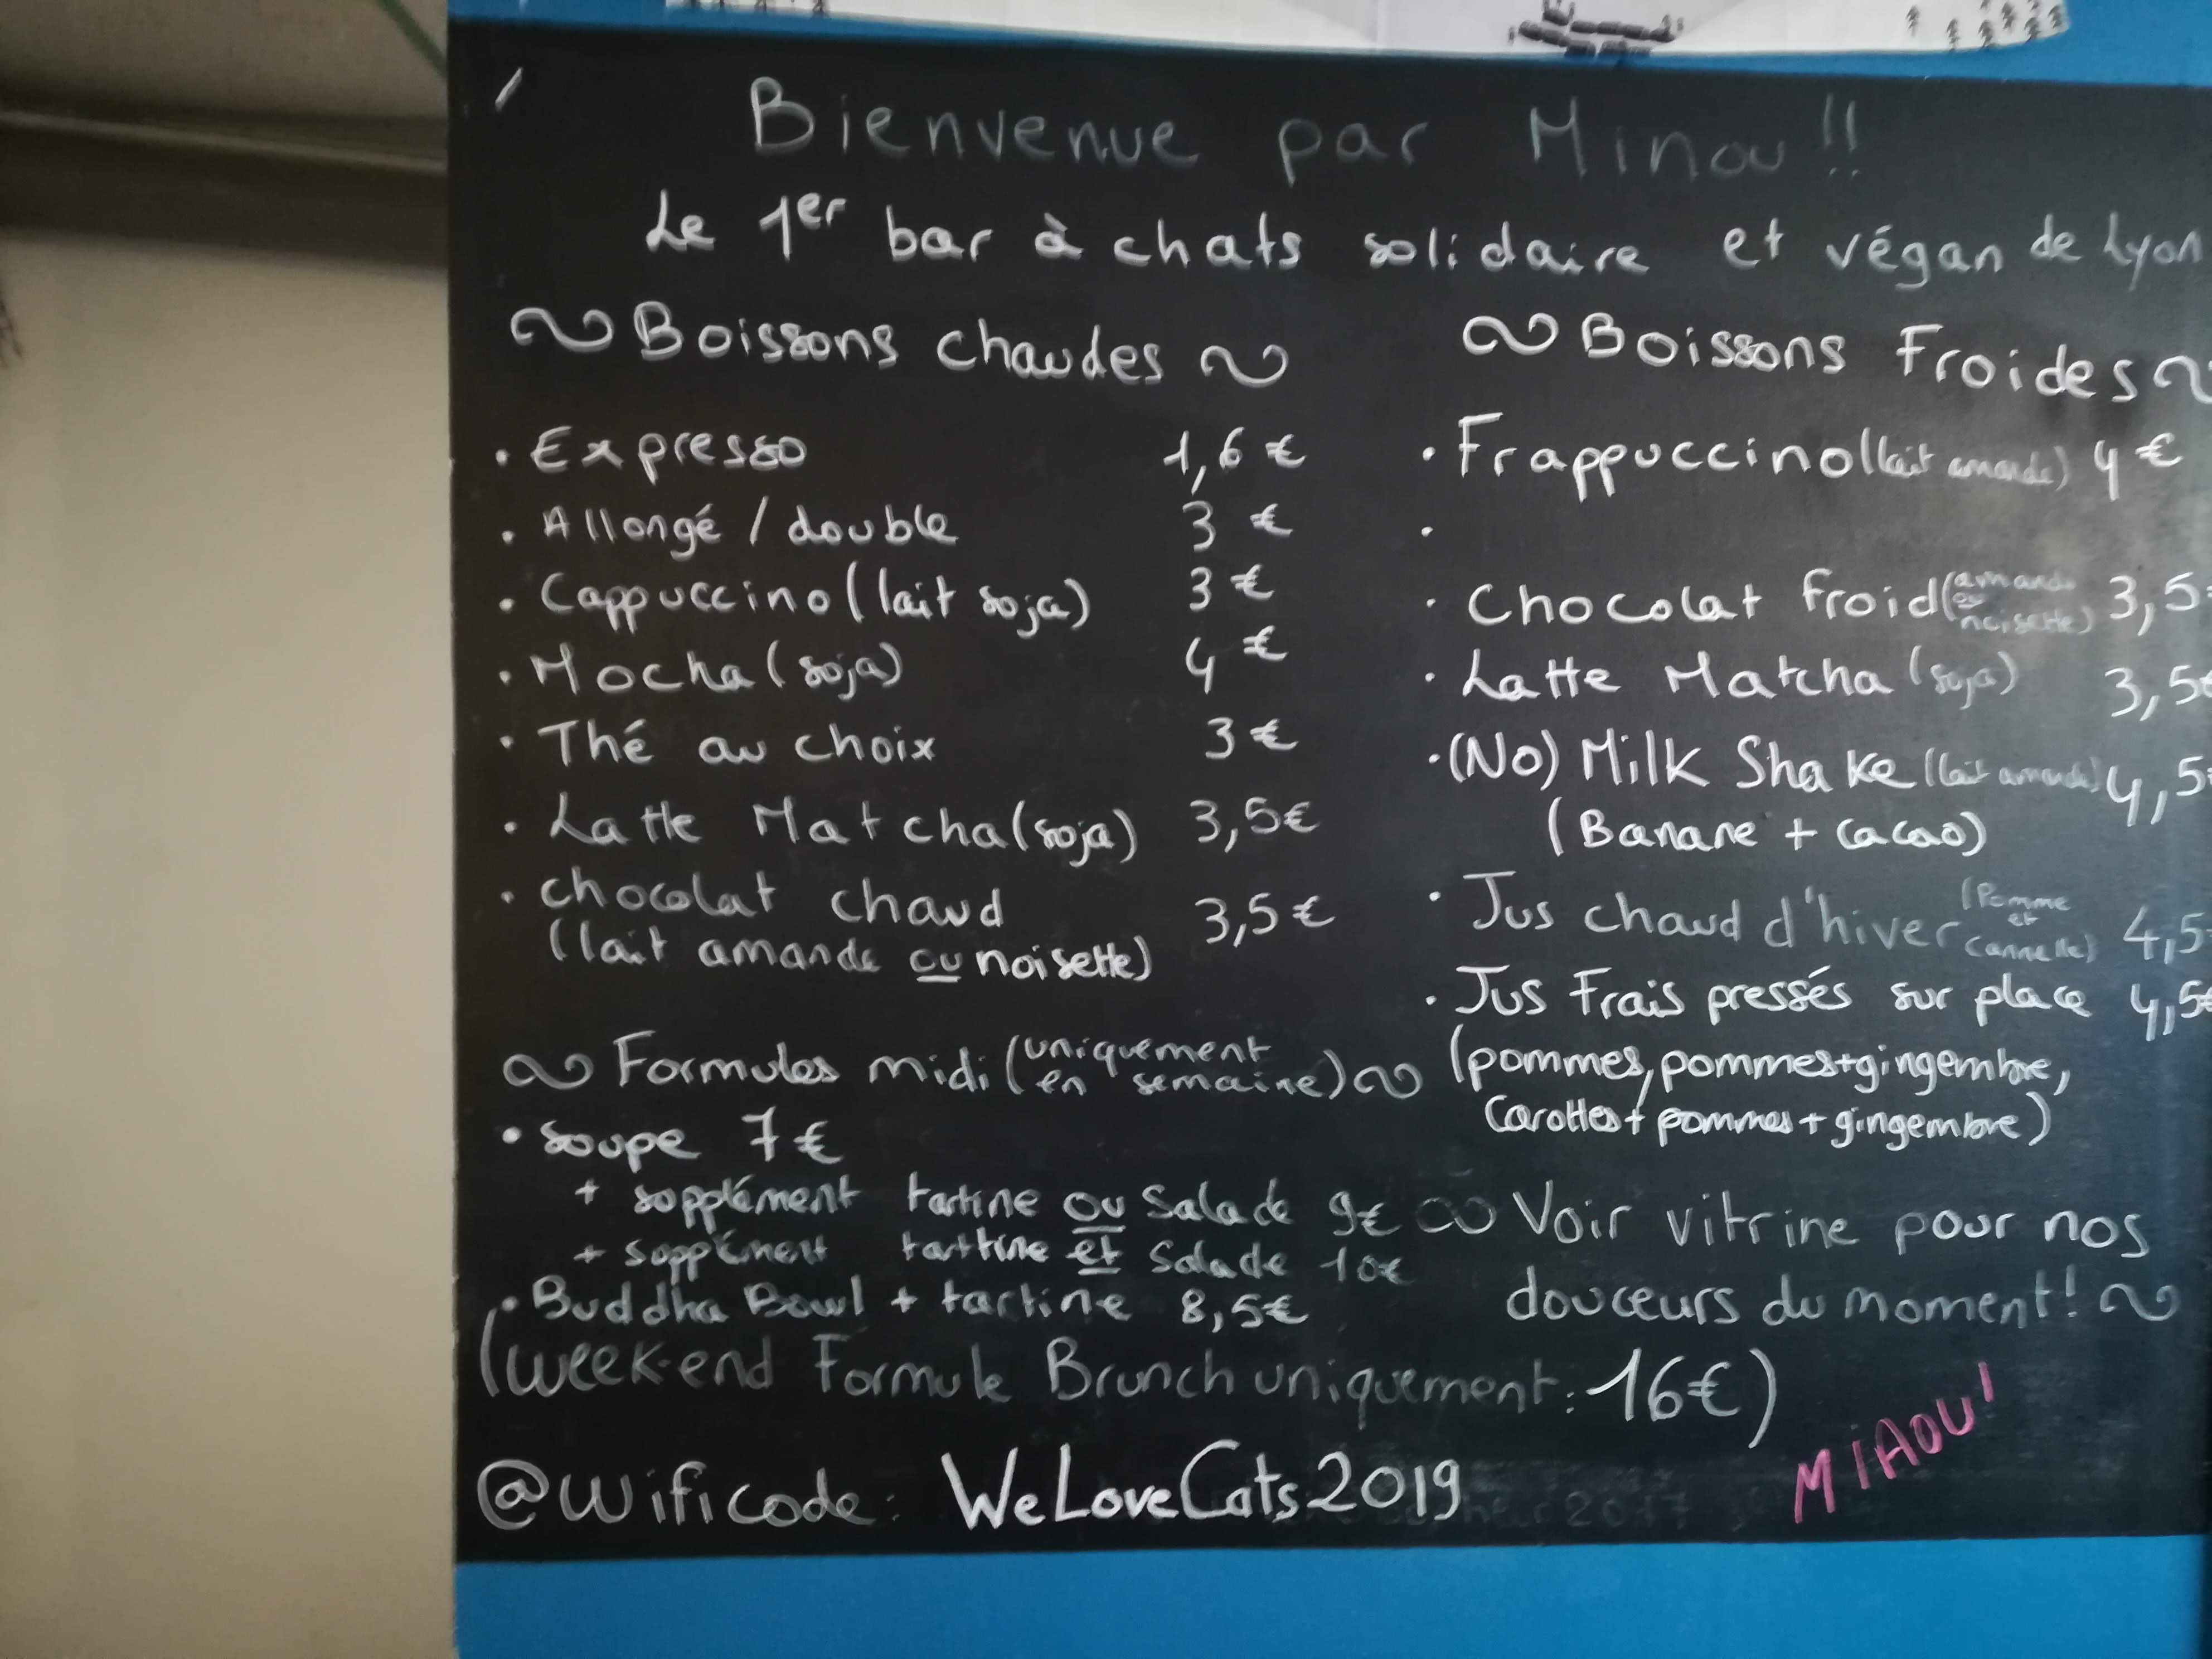 Bienvenue par Minou !!
Le 1er bar à chats solidaire et végan de Lyon
~ Boissons chaudes ~
• Expresso 1,6 €
• Allongé / double 3 €
• Cappuccino (lait soja) 3 €
• Mocha (soja) 4 €
• Thé au choix 3 €
• Latte Matcha (soja) 3,5€
• chocolat chaud 3,5€
(lait amande ou noisette)
~ Formules midi (uniquement en semaine) ~
• Soupe 7€
+ supplément tartine ou Salade 9€
+ supplément tarttine et Salade 10€
• Buddha Bowl + tartine 8,5€
(week-end Formule Brunch uniquement: 16€)
@wificode: WeLoveCats2019
~ Boissons Froides ~
• Frappuccino (lait amande) 4€
•
• Chocolat froid (amande ou noisette) 3,5€
• Latte Matcha (soja) 3,5€
• (No) Milk Shake (lait amande) 4,5€
(Banane + cacao)
• Jus chaud d'hiver (Pomme et cannelle) 4,5€
• Jus Frais pressés sur place 4,5€
(pommes, pommes+gingembre,
Carottes+ pommes+gingembre)
~ Voir vitrine pour nos
douceurs du moment! ~
MiAOU!